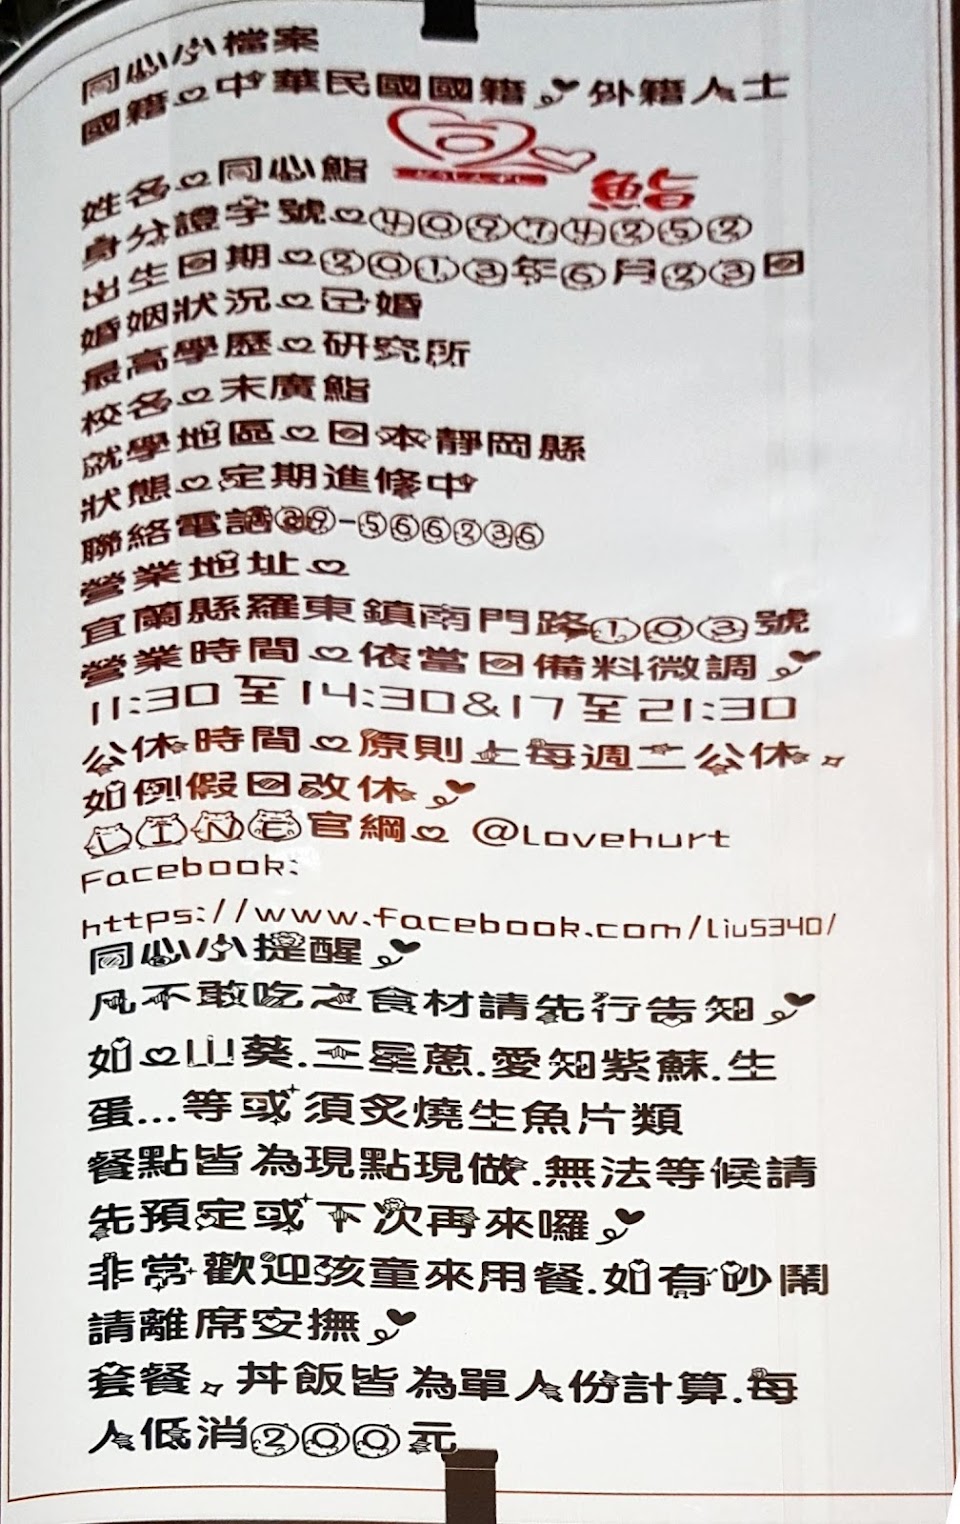 同心小檔案
國籍♡中華民國國籍 外籍人士
姓名♡同心鮨
鮨
身分證字號♡40974252
出生日期♡2013年6月23日
婚姻狀況♡已婚
最高學歷♡研究所
校名♡末廣鮨
就學地區♡日本靜岡縣
狀態♡定期進修中
聯絡電話039-566236
營業地址♡
宜蘭縣羅東鎮南門路103號
營業時間♡依當日備料微調
11:30至14:30&17至21:30
公休時間♡原則上每週二公休,
如例假日改休
LINE官網♡ @Lovehurt
Facebook:
https://www.facebook.com/Liu5340/
同心小提醒
凡不敢吃之食材請先行告知
如♡山葵.三星蔥.愛知紫蘇.生
蛋...等或須炙燒生魚片類
餐點皆為現點現做.無法等候請
先預定或下次再來囉
非常歡迎孩童來用餐.如有吵鬧
請離席安撫
套餐,丼飯皆為單人份計算.每
人低消200元